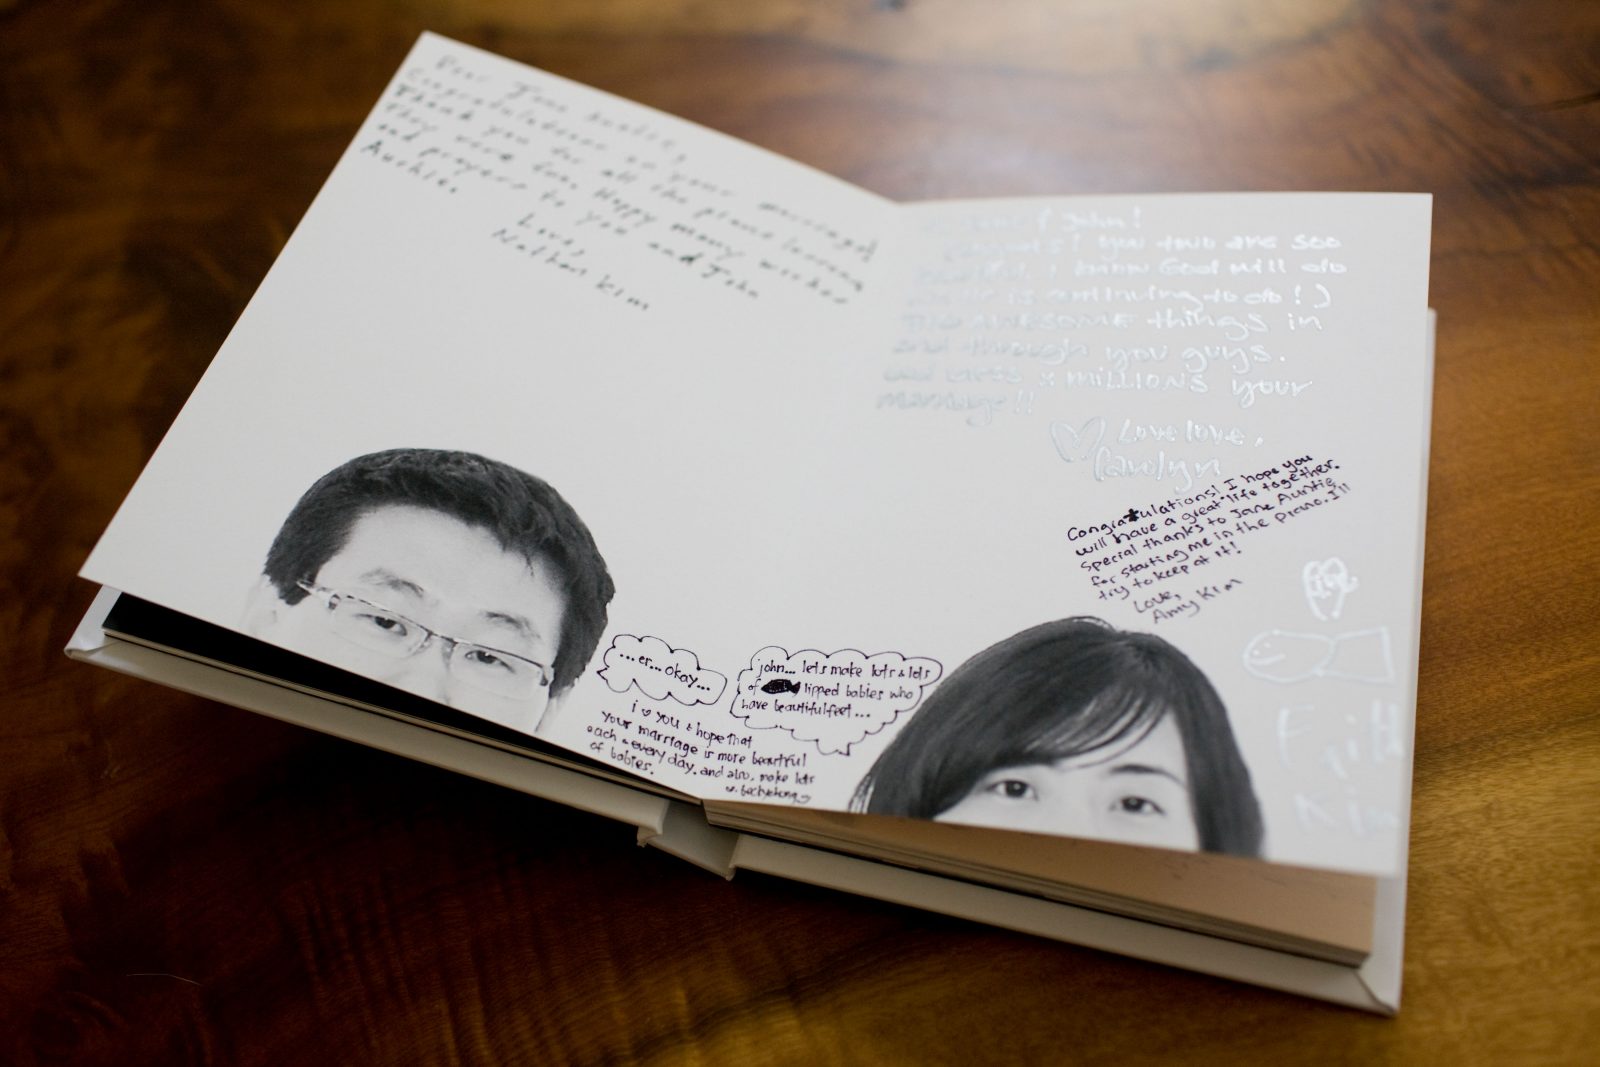 Dear Jane Auntie,
Congratulations on your marriage!
Thank you for all the piano lessons
They were fun. Happy many wishes
and prayers to you and John
Auntie.
Love,
Nathan Kim
Jane & John!
Congrats! you two are soo
I know God will do
is continuing to do!)
AWESOME things in
and through you guys.
God bless x MILLIONS your
marriage!!
Love love,
Carolyn
Congratulations! I hope you
will have a great life together.
Special thanks to Jane Auntie
for starting me in the piano. I'll
try to keep at it!
Love,
Amy Kim
...er... okay...
john... let's make lots & lots
of lipped babies who
have beautiful feet...
i you & hope that
your marriage is more beautiful
each & every day. and also, make lots
of babies.
Kim